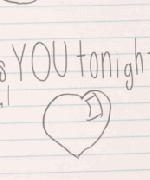 s YOU tonight
!